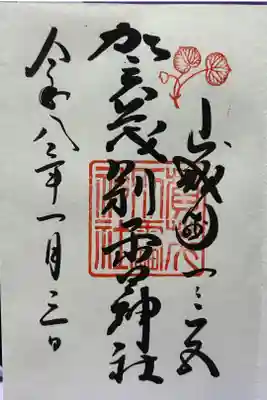 山城國一之宮
賀茂別雷神社
令和八年一月三日